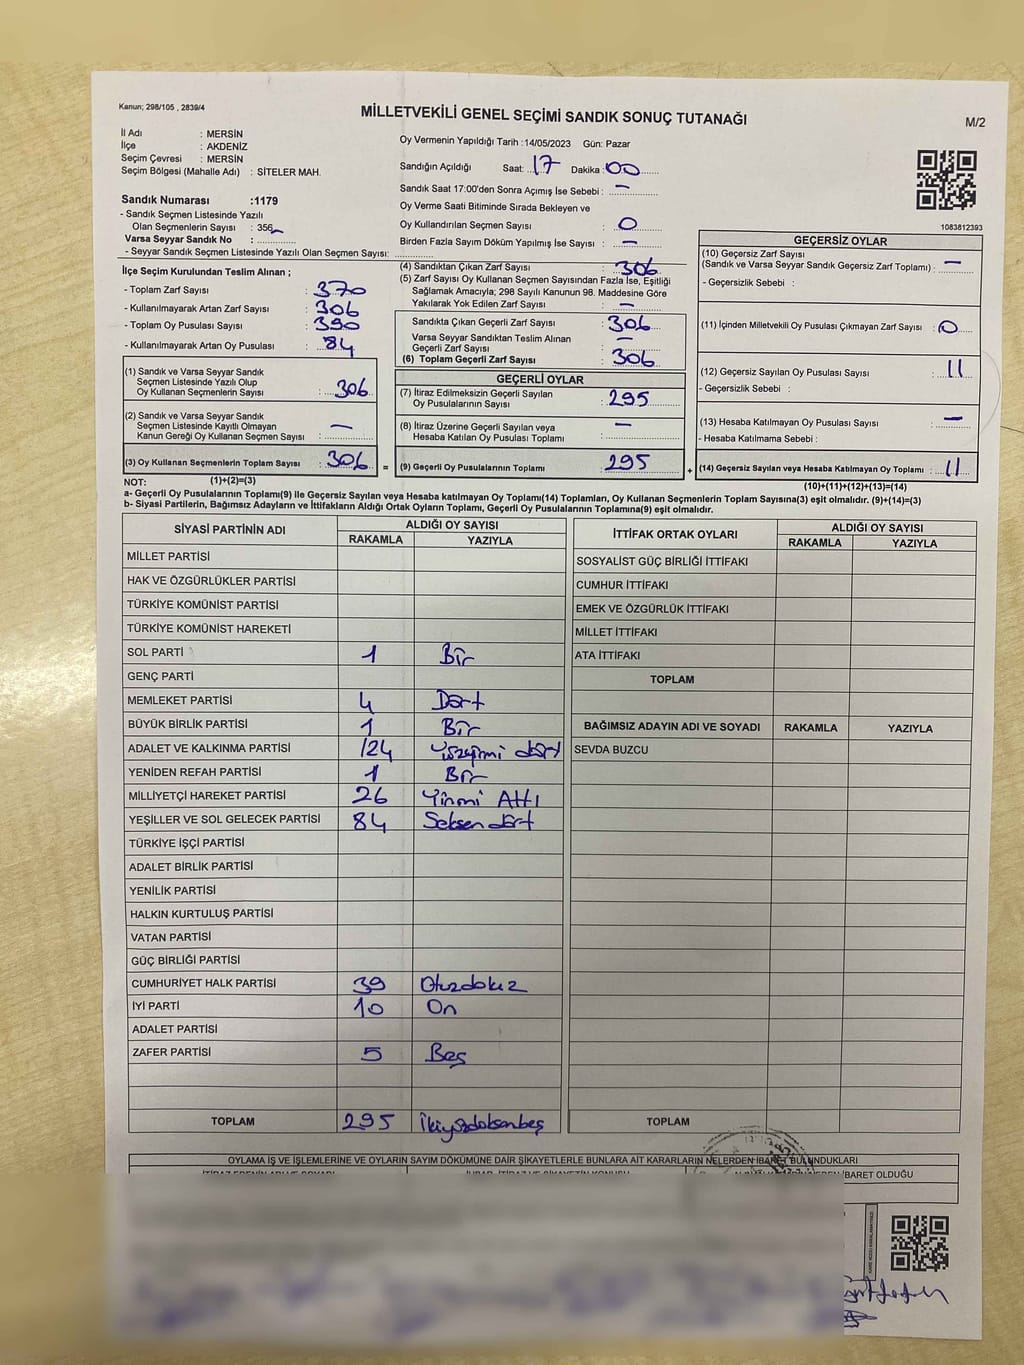 Kanun; 298/105 , 2839/4
MİLLETVEKİLİ GENEL SEÇİMİ SANDIK SONUÇ TUTANAĞI
M/2
İl Adı : MERSİN
İlçe : AKDENİZ
Seçim Çevresi : MERSİN
Seçim Bölgesi (Mahalle Adı) : SİTELER MAH.
Sandık Numarası :1179
- Sandık Seçmen Listesinde Yazılı
Olan Seçmenlerin Sayısı : 356
Varsa Seyyar Sandık No :
- Seyyar Sandık Seçmen Listesinde Yazılı Olan Seçmen Sayısı:
Oy Vermenin Yapıldığı Tarih :14/05/2023 Gün: Pazar
Sandığın Açıldığı Saat: 17 Dakika: 00
Sandık Saat 17:00'den Sonra Açımış İse Sebebi : -
Oy Verme Saati Bitiminde Sırada Bekleyen ve
Oy Kullandırılan Seçmen Sayısı : 0
Birden Fazla Sayım Döküm Yapılmış İse Sayısı : -
1083812393
İlçe Seçim Kurulundan Teslim Alınan ;
- Toplam Zarf Sayısı : 370
- Kullanılmayarak Artan Zarf Sayısı : 306
- Toplam Oy Pusulası Sayısı : 390
- Kullanılmayarak Artan Oy Pusulası : 84
(1) Sandık ve Varsa Seyyar Sandık
Seçmen Listesinde Yazılı Olup
Oy Kullanan Seçmenlerin Sayısı : 306
(2) Sandık ve Varsa Seyyar Sandık
Seçmen Listesinde Kayıtlı Olmayan
Kanun Gereği Oy Kullanan Seçmen Sayısı : -
(3) Oy Kullanan Seçmenlerin Toplam Sayısı : 306
(1)+(2)=(3)
(4) Sandıktan Çıkan Zarf Sayısı : 306
(5) Zarf Sayısı Oy Kullanan Seçmen Sayısından Fazla İse, Eşitliği
Sağlamak Amacıyla; 298 Sayılı Kanunun 98. Maddesine Göre
Yakılarak Yok Edilen Zarf Sayısı : -
Sandıkta Çıkan Geçerli Zarf Sayısı : 306
Varsa Seyyar Sandıktan Teslim Alınan
Geçerli Zarf Sayısı : -
(6) Toplam Geçerli Zarf Sayısı : 306
GEÇERLİ OYLAR
(7) İtiraz Edilmeksizin Geçerli Sayılan
Oy Pusulalarının Sayısı : 295
(8) İtiraz Üzerine Geçerli Sayılan veya
Hesaba Katılan Oy Pusulası Toplamı : -
= (9) Geçerli Oy Pusulalarının Toplamı : 295
GEÇERSİZ OYLAR
(10) Geçersiz Zarf Sayısı
(Sandık ve Varsa Seyyar Sandık Geçersiz Zarf Toplamı) : -
- Geçersizlik Sebebi :
(11) İçinden Milletvekili Oy Pusulası Çıkmayan Zarf Sayısı : 0
(12) Geçersiz Sayılan Oy Pusulası Sayısı : 11
- Geçersizlik Sebebi :
(13) Hesaba Katılmayan Oy Pusulası Sayısı : -
- Hesaba Katılmama Sebebi :
+ (14) Geçersiz Sayılan veya Hesaba Katılmayan Oy Toplamı : 11
(10)+(11)+(12)+(13)=(14)
NOT:
a- Geçerli Oy Pusulalarının Toplamı(9) ile Geçersiz Sayılan veya Hesaba katılmayan Oy Toplamı(14) Toplamları, Oy Kullanan Seçmenlerin Toplam Sayısına(3) eşit olmalıdır. (9)+(14)=(3)
b- Siyasi Partilerin, Bağımsız Adayların ve İttifakların Aldığı Ortak Oyların Toplamı, Geçerli Oy Pusulalarının Toplamına(9) eşit olmalıdır.
SİYASİ PARTİNİN ADI ALDIĞI OY SAYISI
RAKAMLA YAZIYLA
MİLLET PARTİSİ
HAK VE ÖZGÜRLÜKLER PARTİSİ
TÜRKİYE KOMÜNİST PARTİSİ
TÜRKİYE KOMÜNİST HAREKETİ
SOL PARTİ 1 Bir
GENÇ PARTİ
MEMLEKET PARTİSİ 4 Dört
BÜYÜK BİRLİK PARTİSİ 1 Bir
ADALET VE KALKINMA PARTİSİ 124 Yüzyirmi dört
YENİDEN REFAH PARTİSİ 1 Bir
MİLLİYETÇİ HAREKET PARTİSİ 26 Yirmi Altı
YEŞİLLER VE SOL GELECEK PARTİSİ 84 Seksendört
TÜRKİYE İŞÇİ PARTİSİ
ADALET BİRLİK PARTİSİ
YENİLİK PARTİSİ
HALKIN KURTULUŞ PARTİSİ
VATAN PARTİSİ
GÜÇ BİRLİĞİ PARTİSİ
CUMHURİYET HALK PARTİSİ 39 Otuzdokuz
İYİ PARTİ 10 On
ADALET PARTİSİ
ZAFER PARTİSİ 5 Beş
TOPLAM 295 İkiyüzdoksanbeş
İTTİFAK ORTAK OYLARI ALDIĞI OY SAYISI
RAKAMLA YAZIYLA
SOSYALİST GÜÇ BİRLİĞİ İTTİFAKI
CUMHUR İTTİFAKI
EMEK VE ÖZGÜRLÜK İTTİFAKI
MİLLET İTTİFAKI
ATA İTTİFAKI
TOPLAM
BAĞIMSIZ ADAYIN ADI VE SOYADI RAKAMLA YAZIYLA
SEVDA BUZCU
TOPLAM
OYLAMA İŞ VE İŞLEMLERİNE VE OYLARIN SAYIM DÖKÜMÜNE DAİR ŞİKAYETLERLE BUNLARA AİT KARARLARIN NELERDEN İBARET BULUNDUKLARI
İBARET OLDUĞU